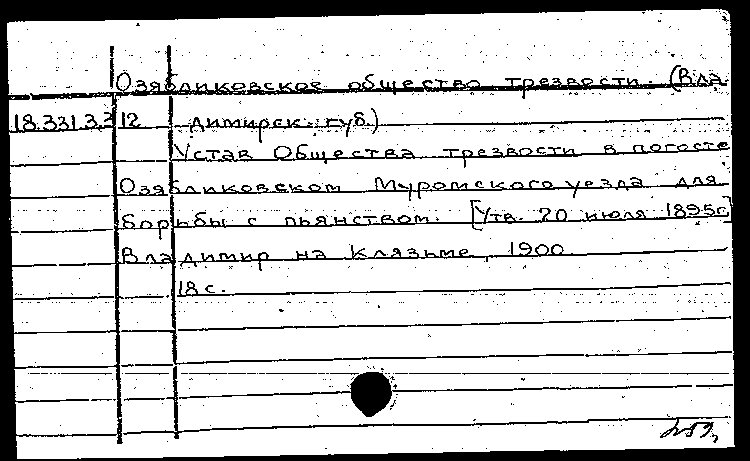 Озябликовское общество трезвости. (Вла-
18.331.3.212 димирск. губ.)
Устав Общества трезвости в погосте
Озябликовском Муромского уезда для
борьбы с пьянством. [Утв. 20 июля 1895г.]
Владимир на Клязьме, 1900.
18 с.